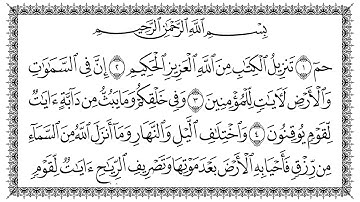 بِسْمِ ٱللَّهِ ٱلرَّحْمَٰنِ ٱلرَّحِيمِ
حمٓ ١ تَنزِيلُ ٱلْكِتَٰبِ مِنَ ٱللَّهِ ٱلْعَزِيزِ ٱلْحَكِيمِ ٢ إِنَّ فِى ٱلسَّمَٰوَٰتِ
وَٱلْأَرْضِ لَءَايَٰتٍ لِّلْمُؤْمِنِينَ ٣ وَفِى خَلْقِكُمْ وَمَا يَبُثُّ مِن دَآبَّةٍ ءَايَٰتٌ
لِّقَوْمٍ يُوقِنُونَ ٤ وَٱخْتِلَٰفِ ٱلَّيْلِ وَٱلنَّهَارِ وَمَآ أَنزَلَ ٱللَّهُ مِنَ ٱلسَّمَآءِ
مِن رِّزْقٍ فَأَحْيَا بِهِ ٱلْأَرْضَ بَعْدَ مَوْتِهَا وَتَصْرِيفِ ٱلرِّيَٰحِ ءَايَٰتٌ لِّقَوْمٍ